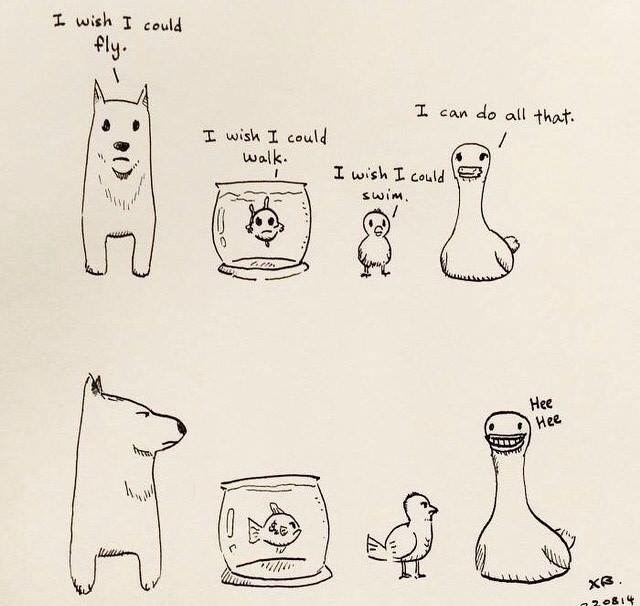 I wish I could
fly.
I wish I could
walk.
I wish I could
swim.
I can do all that.
Hee
Hee
XB.
220814